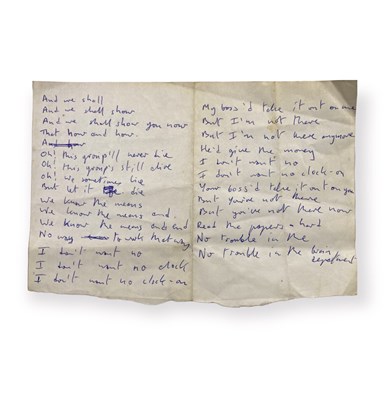 And we shall
And we shall show
And we shall show you now
That how and how.
Oh! this group'll never die
Oh! this group's still alive
Oh! We sometimes lie
But let it die
We know the means
We know the means and
We know the means and end
No way to work that way
I don't want no
I don't want no clock
I don't want no clock-on
My boss'd take it out on me
But I'm not there
But I'm not there anymore
He'd give the money
I don't want no
I don't want no clock-on
Your boss'd take it out on you
But you're not there
But you're not there now
Read the papers - hard
No trouble in the
No trouble in the
department